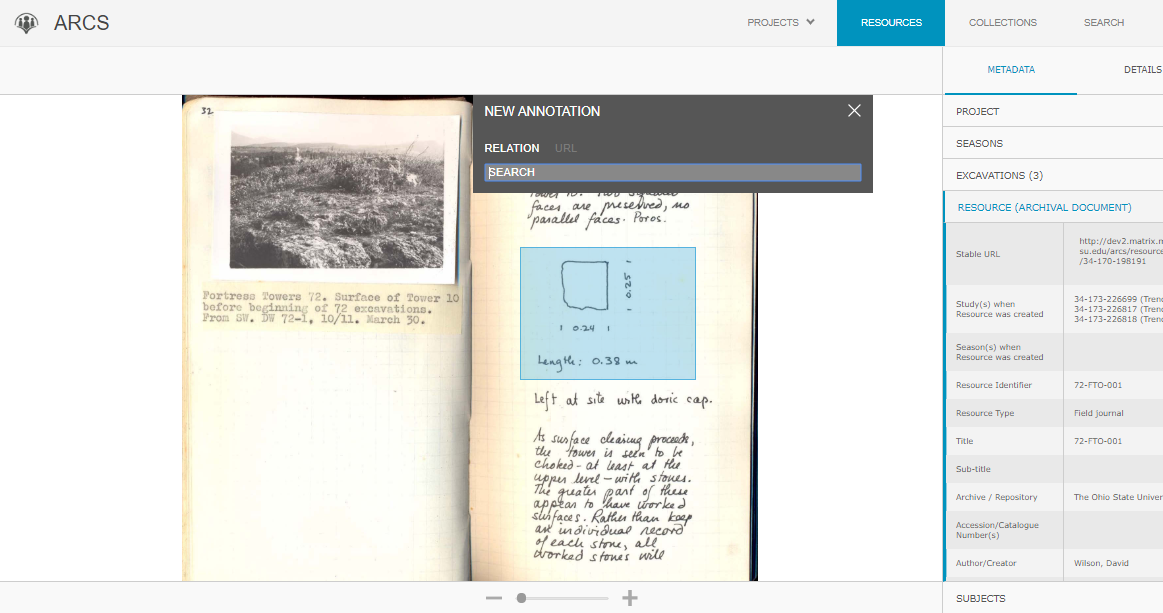 ARCS
PROJECTS
RESOURCES
COLLECTIONS
SEARCH
METADATA
DETAILS
NEW ANNOTATION
RELATION URL
SEARCH
32
Fortress Towers 72. Surface of Tower 10
before beginning of 72 excavations.
From SW. DW 72-1, 10/11. March 30.
faces are preserved, no
parallel faces. Poros.
0.25
0.24
Length: 0.38 m
Left at site with doric cap.
As surface clearing proceeds,
the tower is seen to be
choked - at least at the
upper level - with stones.
The greater part of these
appear to have worked
surfaces. Rather than keep
an individual record
of each stone, all
worked stones will
PROJECT
SEASONS
EXCAVATIONS (3)
RESOURCE (ARCHIVAL DOCUMENT)
Stable URL
http://dev2.matrix.m
su.edu/arcs/resource
/34-170-198191
Study(s) when
Resource was created
34-173-226699 (Tren
34-173-226817 (Tren
34-173-226818 (Tren
Season(s) when
Resource was created
Resource Identifier 72-FTO-001
Resource Type Field journal
Title 72-FTO-001
Sub-title
Archive / Repository The Ohio State Univer
Accession/Catalogue
Number(s)
Author/Creator Wilson, David
SUBJECTS